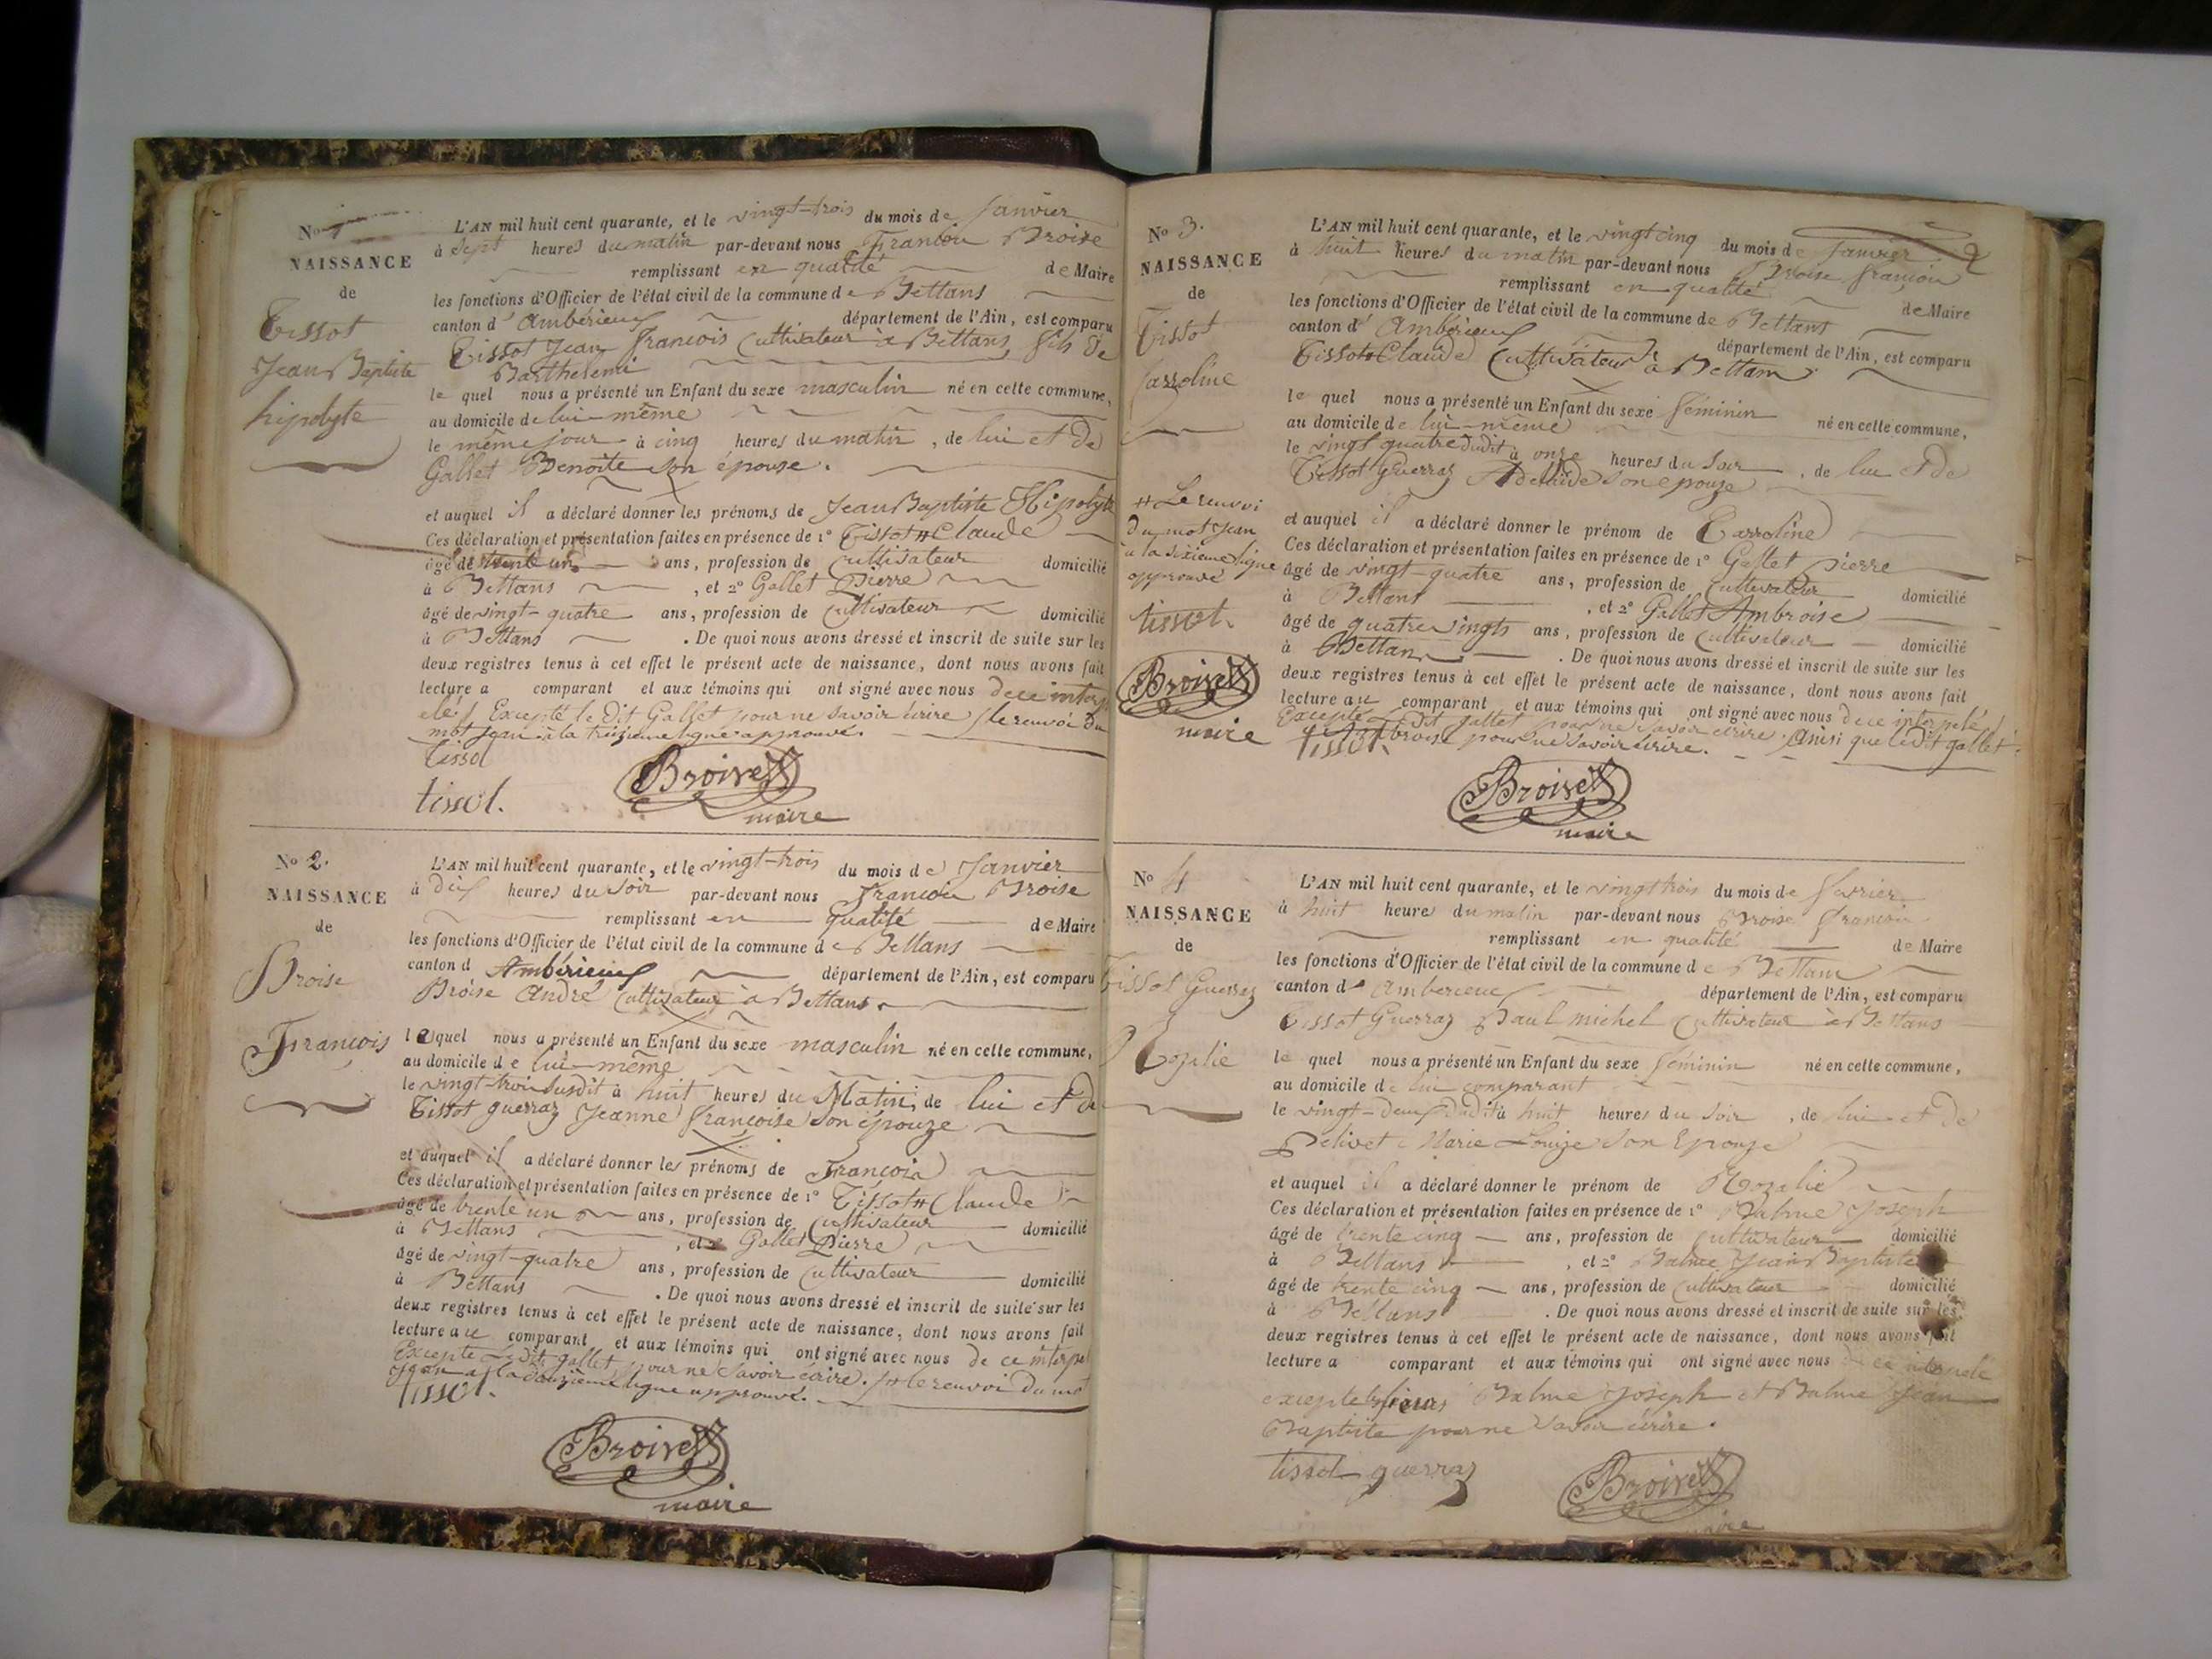 No 1
NAISSANCE
de
Tissot
Jean Baptiste
hipolyte
L'AN mil huit cent quarante, et le vingt-trois du mois de Janvier
à sept heures du matin par-devant nous François Broise
remplissant en qualité de Maire
les fonctions d'Officier de l'état civil de la commune de Bettans
canton d' Ambérieux département de l'Ain, est comparu
Tissot Jean François Cultivateur à Bettans, fils de
Barthelemi
le quel nous a présenté un Enfant du sexe masculin né en cette commune,
au domicile de lui-même
le même jour à cinq heures du matin, de lui et de
Gallet Benoite son épouse.
et auquel il a déclaré donner les prénoms de Jean Baptiste Hipolyte
Ces déclaration et présentation faites en présence de 1° Tissot # Claude
âgé de trente un ans, profession de Cultivateur domicilié
à Bettans, et 2° Gallet Pierre
âgé de vingt-quatre ans, profession de Cultivateur domicilié
à Bettans. De quoi nous avons dressé et inscrit de suite sur les
deux registres tenus à cet effet le présent acte de naissance, dont nous avons fait
lecture a comparant et aux témoins qui ont signé avec nous de ce interp
elés Excepté le dit Gallet pour ne savoir écrire / le renvoi du
mot Jean à la treizieme ligne approuvé.
tissot
tissot. Broise
maire
No 2.
NAISSANCE
de
Broise
François
L'AN mil huit cent quarante, et le vingt-trois du mois de Janvier
à dix heures du soir par-devant nous François Broise
remplissant en qualité de Maire
les fonctions d'Officier de l'état civil de la commune de Bettans
canton d Ambérieux département de l'Ain, est comparu
Broise André Cultivateur à Bettans.
lequel nous a présenté un Enfant du sexe masculin né en cette commune,
au domicile de lui-même
le vingt-trois susdit à huit heures du Matin, de lui et de
Tissot guerraz Jeanne françoise son épouze
et auquel il a déclaré donner les prénoms de François
Ces déclaration et présentation faites en présence de 1° Tissot # Claude
âgé de trente un ans, profession de Cultivateur domicilié
à Bettans, et 2° Gallet Pierre
âgé de vingt-quatre ans, profession de Cultivateur domicilié
à Bettans. De quoi nous avons dressé et inscrit de suite sur les
deux registres tenus à cet effet le présent acte de naissance, dont nous avons fait
lecture au comparant et aux témoins qui ont signé avec nous de ce interpel
Excepté le dit gallet pour ne savoir écrire. / # le renvoi du mot
Jean à la douzieme ligne approuvé.
tissot.
Broise
maire
No 3.
NAISSANCE
de
Tissot
Carroline
# Le renvoi
du mot Jean
à la sixieme ligne
approuvé
tissot.
Broise
maire
L'AN mil huit cent quarante, et le vingt cinq du mois de Janvier
à huit heures du matin par-devant nous Broise françois
remplissant en qualité de Maire
les fonctions d'Officier de l'état civil de la commune de Bettans
canton d' Ambérieux département de l'Ain, est comparu
Tissot # Claude Cultivateur à Bettans.
le quel nous a présenté un Enfant du sexe féminin né en cette commune,
au domicile de lui-même
le vingt quatre dudit à onze heures du soir, de lui et de
Tissot Guerraz Adelaide son épouze
et auquel il a déclaré donner le prénom de Carroline
Ces déclaration et présentation faites en présence de 1° Gallet Pierre
âgé de vingt-quatre ans, profession de Cultivateur domicilié
à Bettans, et 2° Gallet Ambroise
âgé de quatre vingts ans, profession de Cultivateur domicilié
à Bettans. De quoi nous avons dressé et inscrit de suite sur les
deux registres tenus à cet effet le présent acte de naissance, dont nous avons fait
lecture au comparant et aux témoins qui ont signé avec nous de ce interpelé
Excepté dit gallet pour ne savoir écrire. Ainsi que ledit gallet
Ambroise pour ne savoir écrire.
tissot.
Broise
maire
No 4
NAISSANCE
de
Tissot Guerraz
Rozalie
L'AN mil huit cent quarante, et le vingt trois du mois de fevrier
à huit heures du matin par-devant nous Broise françois
remplissant en qualité de Maire
les fonctions d'Officier de l'état civil de la commune de Bettans
canton d' Amberieux département de l'Ain, est comparu
Tissot Guerraz Paul michel Cultivateur à Bettans
le quel nous a présenté un Enfant du sexe féminin né en cette commune,
au domicile de lui comparant
le vingt-deux dudit à huit heures du soir, de lui et de
Pelivet Marie Louize son Epouze
et auquel il a déclaré donner le prénom de Rozalie
Ces déclaration et présentation faites en présence de 1° Balme Joseph
âgé de trente cinq ans, profession de Cultivateur domicilié
à Bettans, et 2° Balme Jean Baptiste
âgé de trente cinq ans, profession de Cultivateur domicilié
à Bettans. De quoi nous avons dressé et inscrit de suite sur les
deux registres tenus à cet effet le présent acte de naissance, dont nous avons fait
lecture a comparant et aux témoins qui ont signé avec nous de ce interpelé
excepté les sieurs Balme Joseph et Balme Jean
Baptiste pour ne savoir écrire.
tissot guerraz Broise
maire